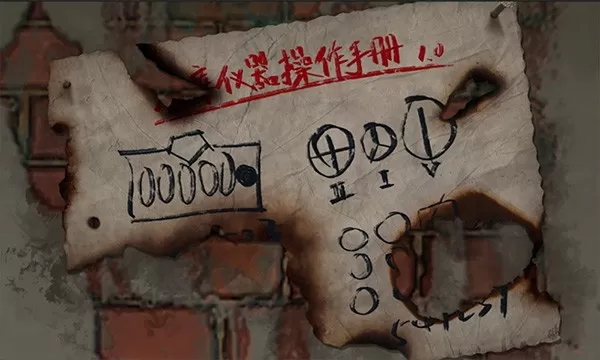 仪器操作手册 1.0
II I V